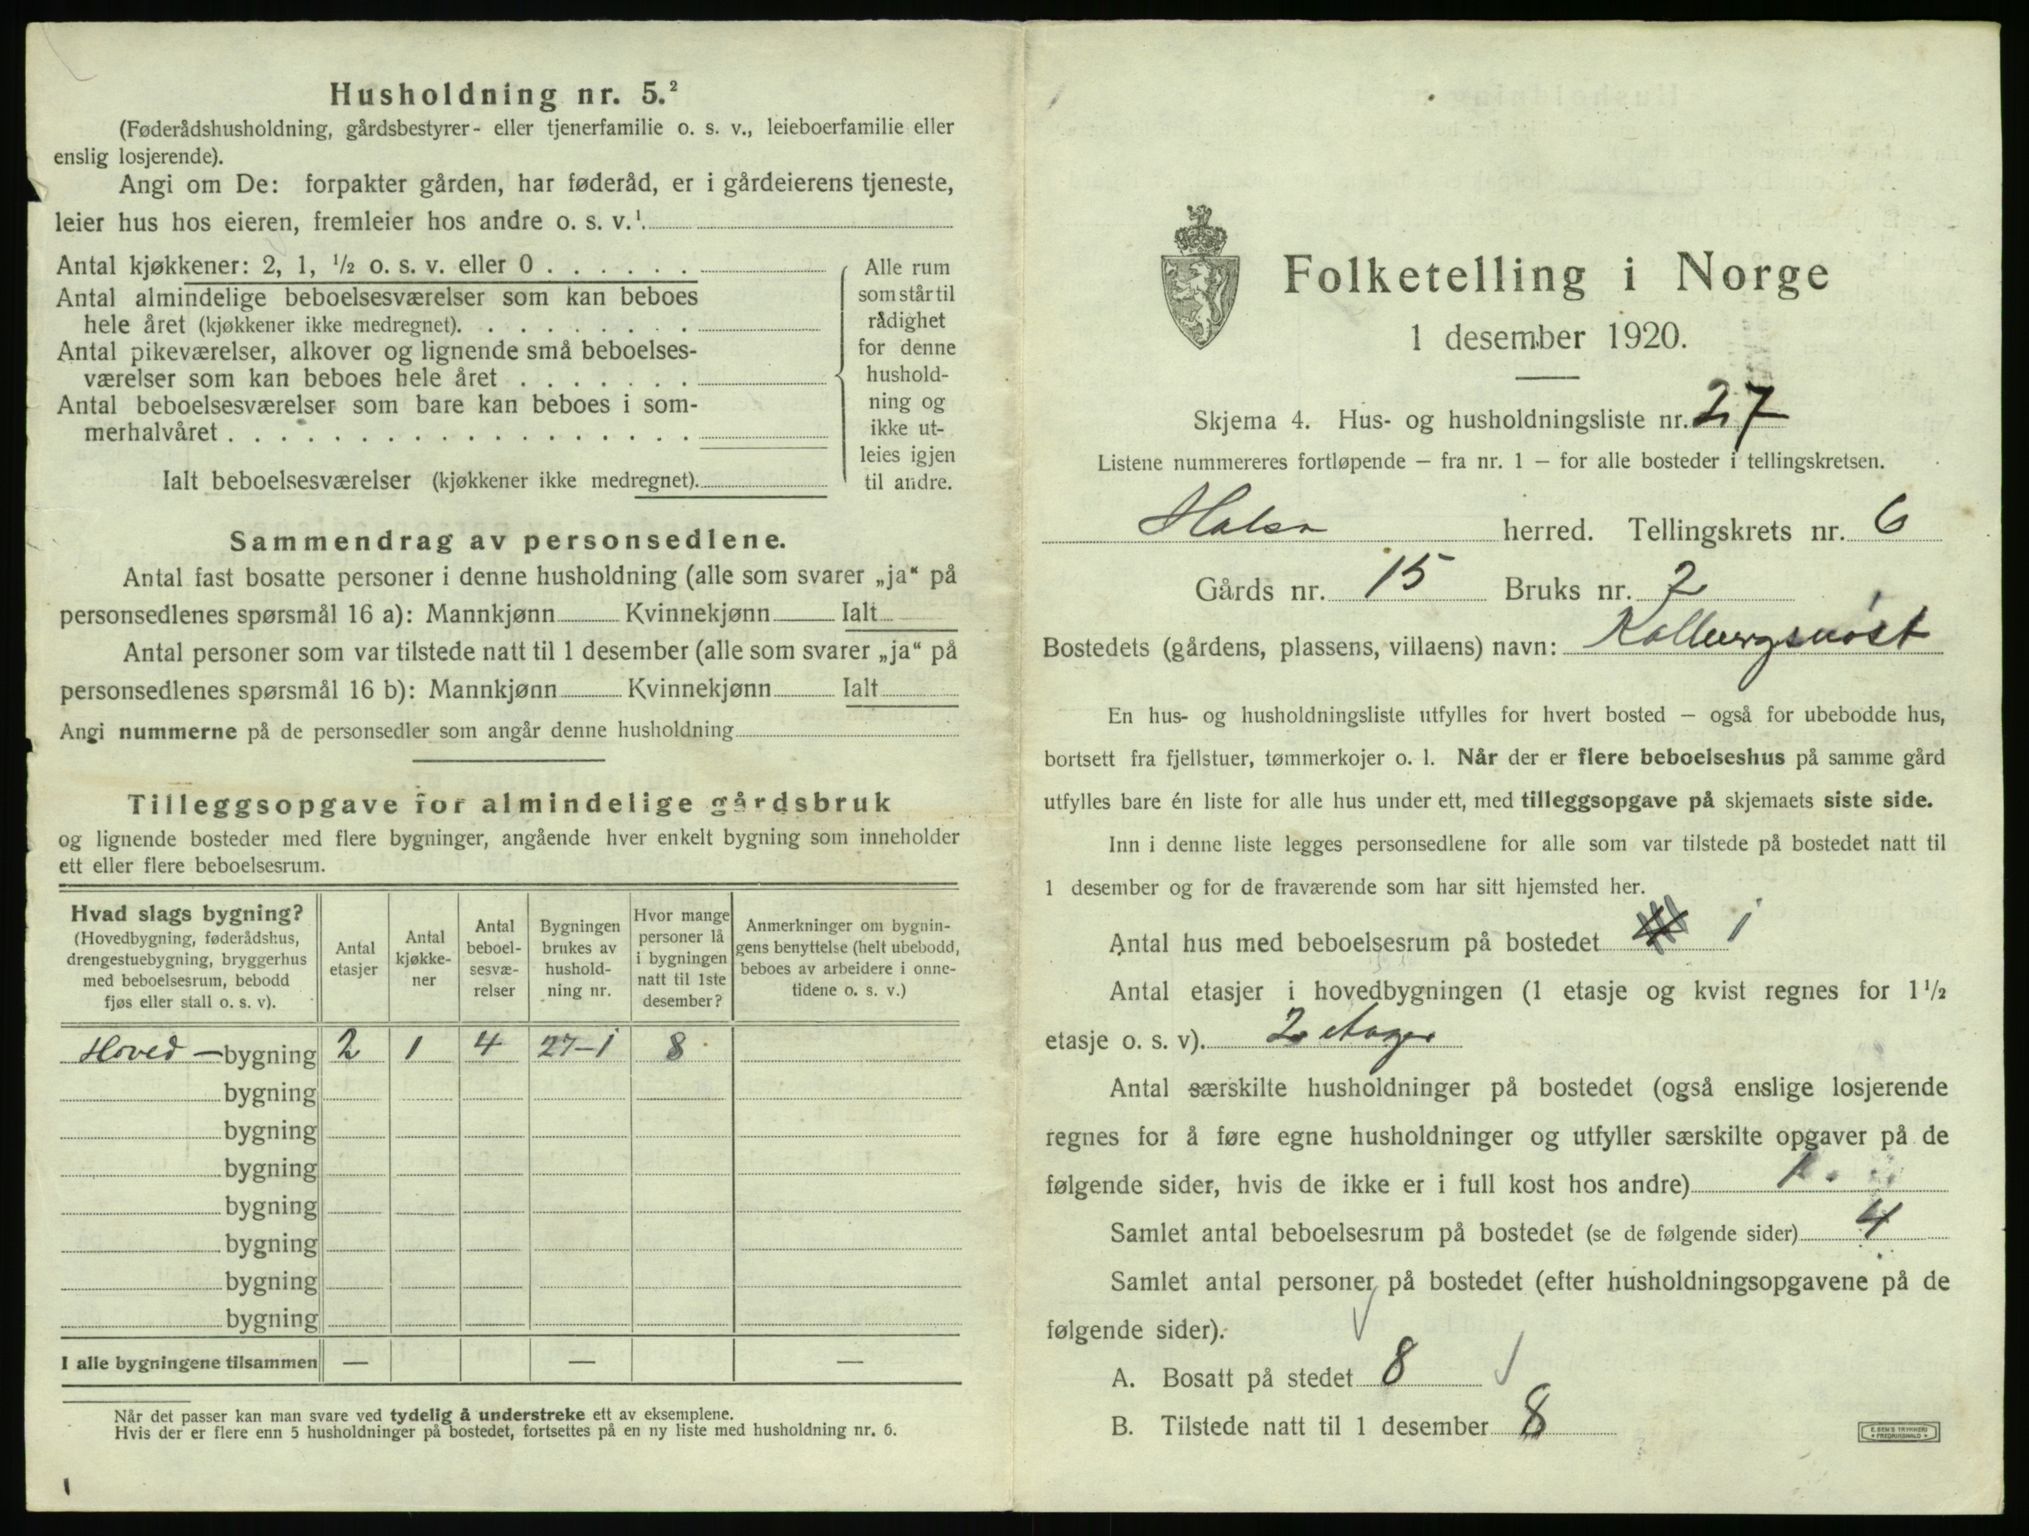 Husholdning nr. 5.²
(Føderådshusholdning, gårdsbestyrer- eller tjenerfamilie o. s. v., leieboerfamilie eller
enslig losjerende).
Angi om De: forpakter gården, har føderåd, er i gårdeierens tjeneste,
leier hus hos eieren, fremleier hos andre o. s. v.¹
Antal kjøkkener: 2, 1, ½ o. s. v. eller 0 . . . . . .
Antal almindelige beboelsesværelser som kan beboes
hele året (kjøkkener ikke medregnet). . . . . . . . .
Antal pikeværelser, alkover og lignende små beboelses-
værelser som kan beboes hele året . . . . . . .
Antal beboelsesværelser som bare kan beboes i som-
merhalvåret . . . . . . . . . . . . . . . . . .
Ialt beboelsesværelser (kjøkkener ikke medregnet).
Alle rum
som står til
rådighet
for denne
hushold-
ning og
ikke ut-
leies igjen
til andre.
Sammendrag av personsedlene.
Antal fast bosatte personer i denne husholdning (alle som svarer „ja“ på
personsedlenes spørsmål 16 a): Mannkjønn Kvinnekjønn Ialt
Antal personer som var tilstede natt til 1 desember (alle som svarer „ja“ på
personsedlenes spørsmål 16 b): Mannkjønn Kvinnekjønn Ialt
Angi nummerne på de personsedler som angår denne husholdning
Tilleggsopgave for almindelige gårdsbruk
og lignende bosteder med flere bygninger, angående hver enkelt bygning som inneholder
ett eller flere beboelsesrum.
Hvad slags bygning?
(Hovedbygning, føderådshus,
drengestuebygning, bryggerhus
med beboelsesrum, bebodd
fjøs eller stall o. s. v).
Antal
etasjer
Antal
kjøkke-
ner
Antal
beboel-
sesvæ-
relser
Bygningen
brukes av
hushold-
ning nr.
Hvor mange
personer lå
i bygningen
natt til 1ste
desember?
Anmerkninger om bygnin-
gens benyttelse (helt ubebodd,
beboes av arbeidere i onne-
tidene o. s. v.)
Hoved - bygning 2 1 4 27-1 8
bygning
bygning
bygning
bygning
bygning
bygning
bygning
I alle bygningene tilsammen — — —
Når det passer kan man svare ved tydelig å understreke ett av eksemplene.
Hvis der er flere enn 5 husholdninger på bostedet, fortsettes på en ny liste med husholdning nr. 6.
Folketelling i Norge
1 desember 1920.
Skjema 4. Hus- og husholdningsliste nr. 27
Listene nummereres fortløpende – fra nr. 1 – for alle bosteder i tellingskretsen.
Halsa herred. Tellingskrets nr. 6
Gårds nr. 15 Bruks nr. 2
Bostedets (gårdens, plassens, villaens) navn:
En hus- og husholdningsliste utfylles for hvert bosted – også for ubebodde hus,
bortsett fra fjellstuer, tømmerkojer o. l. Når der er flere beboelseshus på samme gård
utfylles bare én liste for alle hus under ett, med tilleggsopgave på skjemaets siste side.
Inn i denne liste legges personsedlene for alle som var tilstede på bostedet natt til
1 desember og for de fraværende som har sitt hjemsted her.
Antal hus med beboelsesrum på bostedet 1
Antal etasjer i hovedbygningen (1 etasje og kvist regnes for 1½
etasje o. s. v). 2 etager
Antal særskilte husholdninger på bostedet (også enslige losjerende
regnes for å føre egne husholdninger og utfyller særskilte opgaver på de
følgende sider, hvis de ikke er i full kost hos andre) 1.
Samlet antal beboelsesrum på bostedet (se de følgende sider) 4
Samlet antal personer på bostedet (efter husholdningsopgavene på de
følgende sider).
A. Bosatt på stedet 8
B. Tilstede natt til 1 desember 8
E. SEM'S TRYKKERI
FREDRIKSHALD